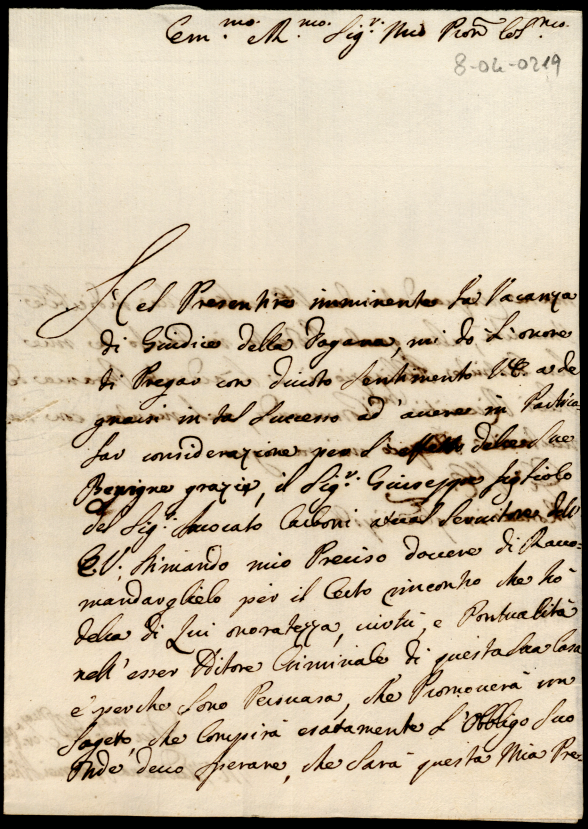 Em.mo R.mo Sig.r Mio Pron Col.mo
8-04-0219
Nel Presentire imminente la Vacanza
di Giudice della Dogana, mi dò l'onore
di Pregar con divoto sentimento V.E. a de
gnarsi in tal successo ad' avere in Partico
lar considerazione per l'effetto delle Sue
Benigne grazie, il Sig.r Giuseppe figliolo
del Sig.r Avocato Carboni atual Servitore dell'
E.V. stimando mio Preciso dovere di Racco=
mandarglielo per il Certo rincontro che hò
della di Lui onoratezza, virtù, e Pontualità
nell'esser Uditore Criminale di questa Sua Casa
e perche sono Persuasa, che Promoverà un
Sageto, che Compirà esatamente l'Obbligo Suo
Onde devo sperare, che sarà questa Mia Pre=